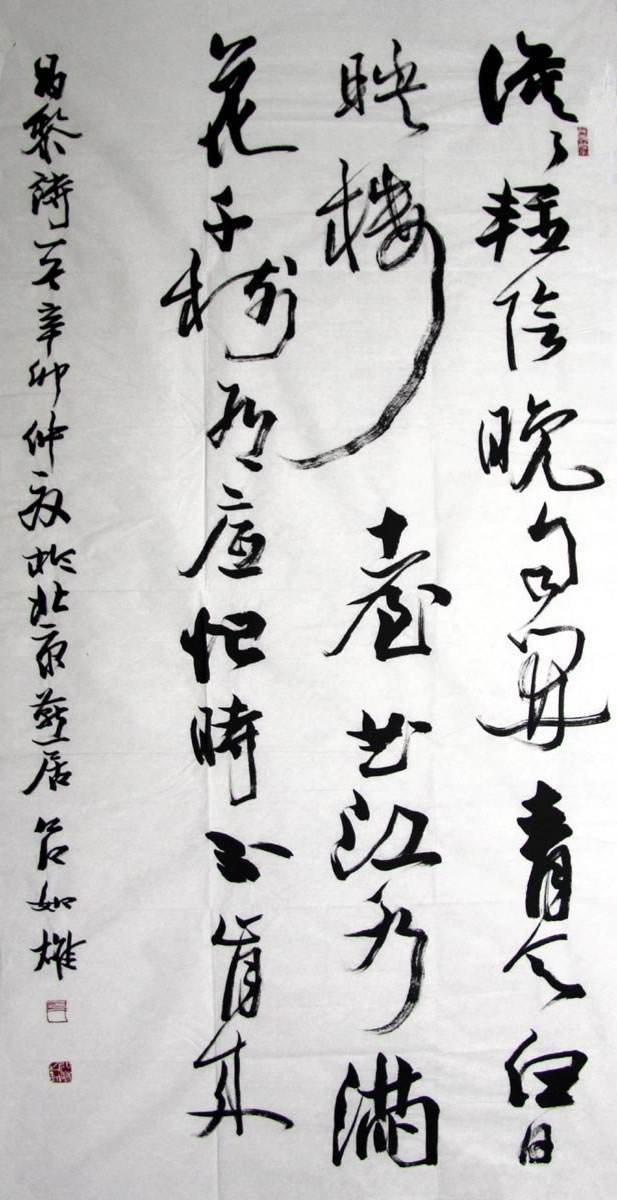 漠々輕陰晚自開青天白日
映樓臺曲江水滿
花千樹有底忙時不肯來
昌黎詩一首辛卯仲夏於北京燕居呂如雄